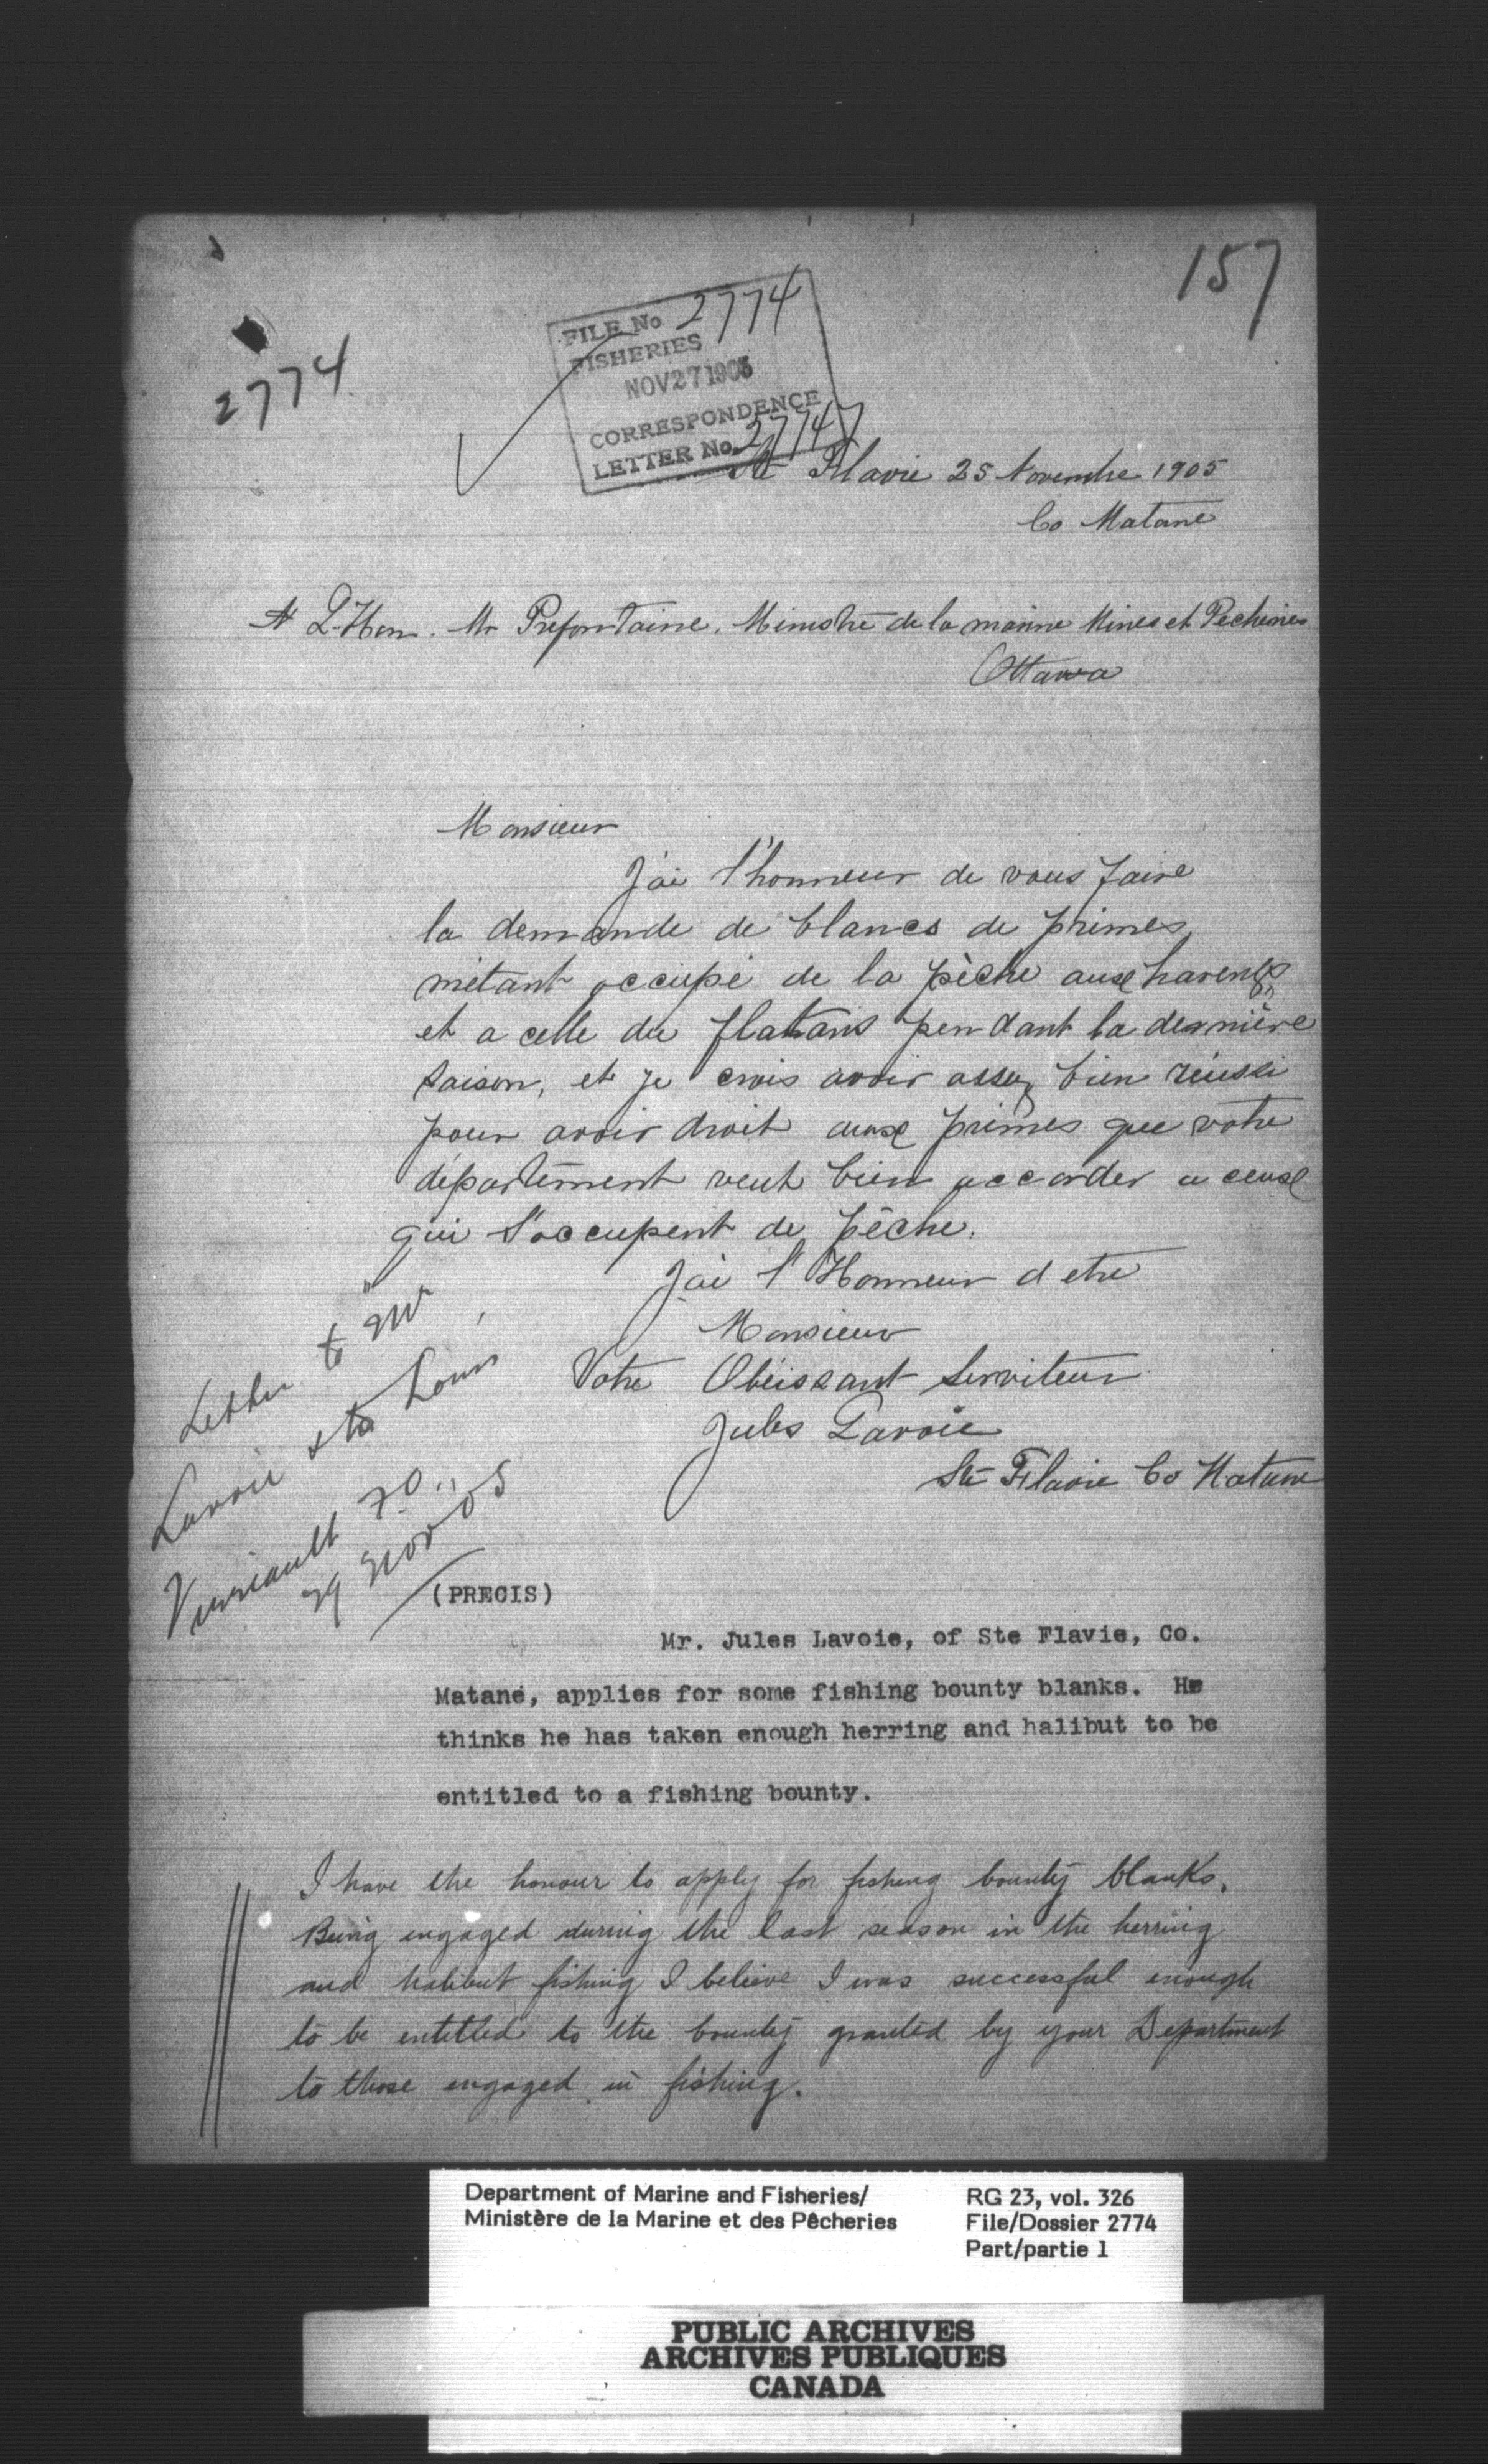 157
2774
FILE No 2774
FISHERIES
NOV 27 1905
CORRESPONDENCE
LETTER No. 27747
Ste Flavie 25 Novembre 1905
Co Matane
A L'Hon. Mr Prefontaine. Ministre de la marine Mines et Pecheries
Ottawa
Monsieur
J'ai l'honneur de vous faire
la demande de blancs de primes,
métant occupé de la pèche aux harengs
et a celle du flatans pendant la dernière
saison, et je crois avoir assez bien réussi
pour avoir droit aux primes que votre
département veut bien accorder a ceux
qui s'occupent de pêche.
J'ai l'Honneur d etre
Monsieur
Votre Obéissant Serviteur
Jules Lavoie
Ste Flavie Co Matane
Letter to Mr
Lavoie & to Louis
29 Nov 05
(PRECIS)
Mr. Jules Lavoie, of Ste Flavie, Co.
Matane, applies for some fishing bounty blanks. He
thinks he has taken enough herring and halibut to be
entitled to a fishing bounty.
I have the honour to apply for fishing bounty blanks.
Being engaged during the last season in the herring
and halibut fishing I believe I was successful enough
to be entitled to the bounty granted by your Department
to those engaged in fishing.
Department of Marine and Fisheries/
Ministère de la Marine et des Pêcheries
RG 23, vol. 326
File/Dossier 2774
Part/partie 1
PUBLIC ARCHIVES
ARCHIVES PUBLIQUES
CANADA